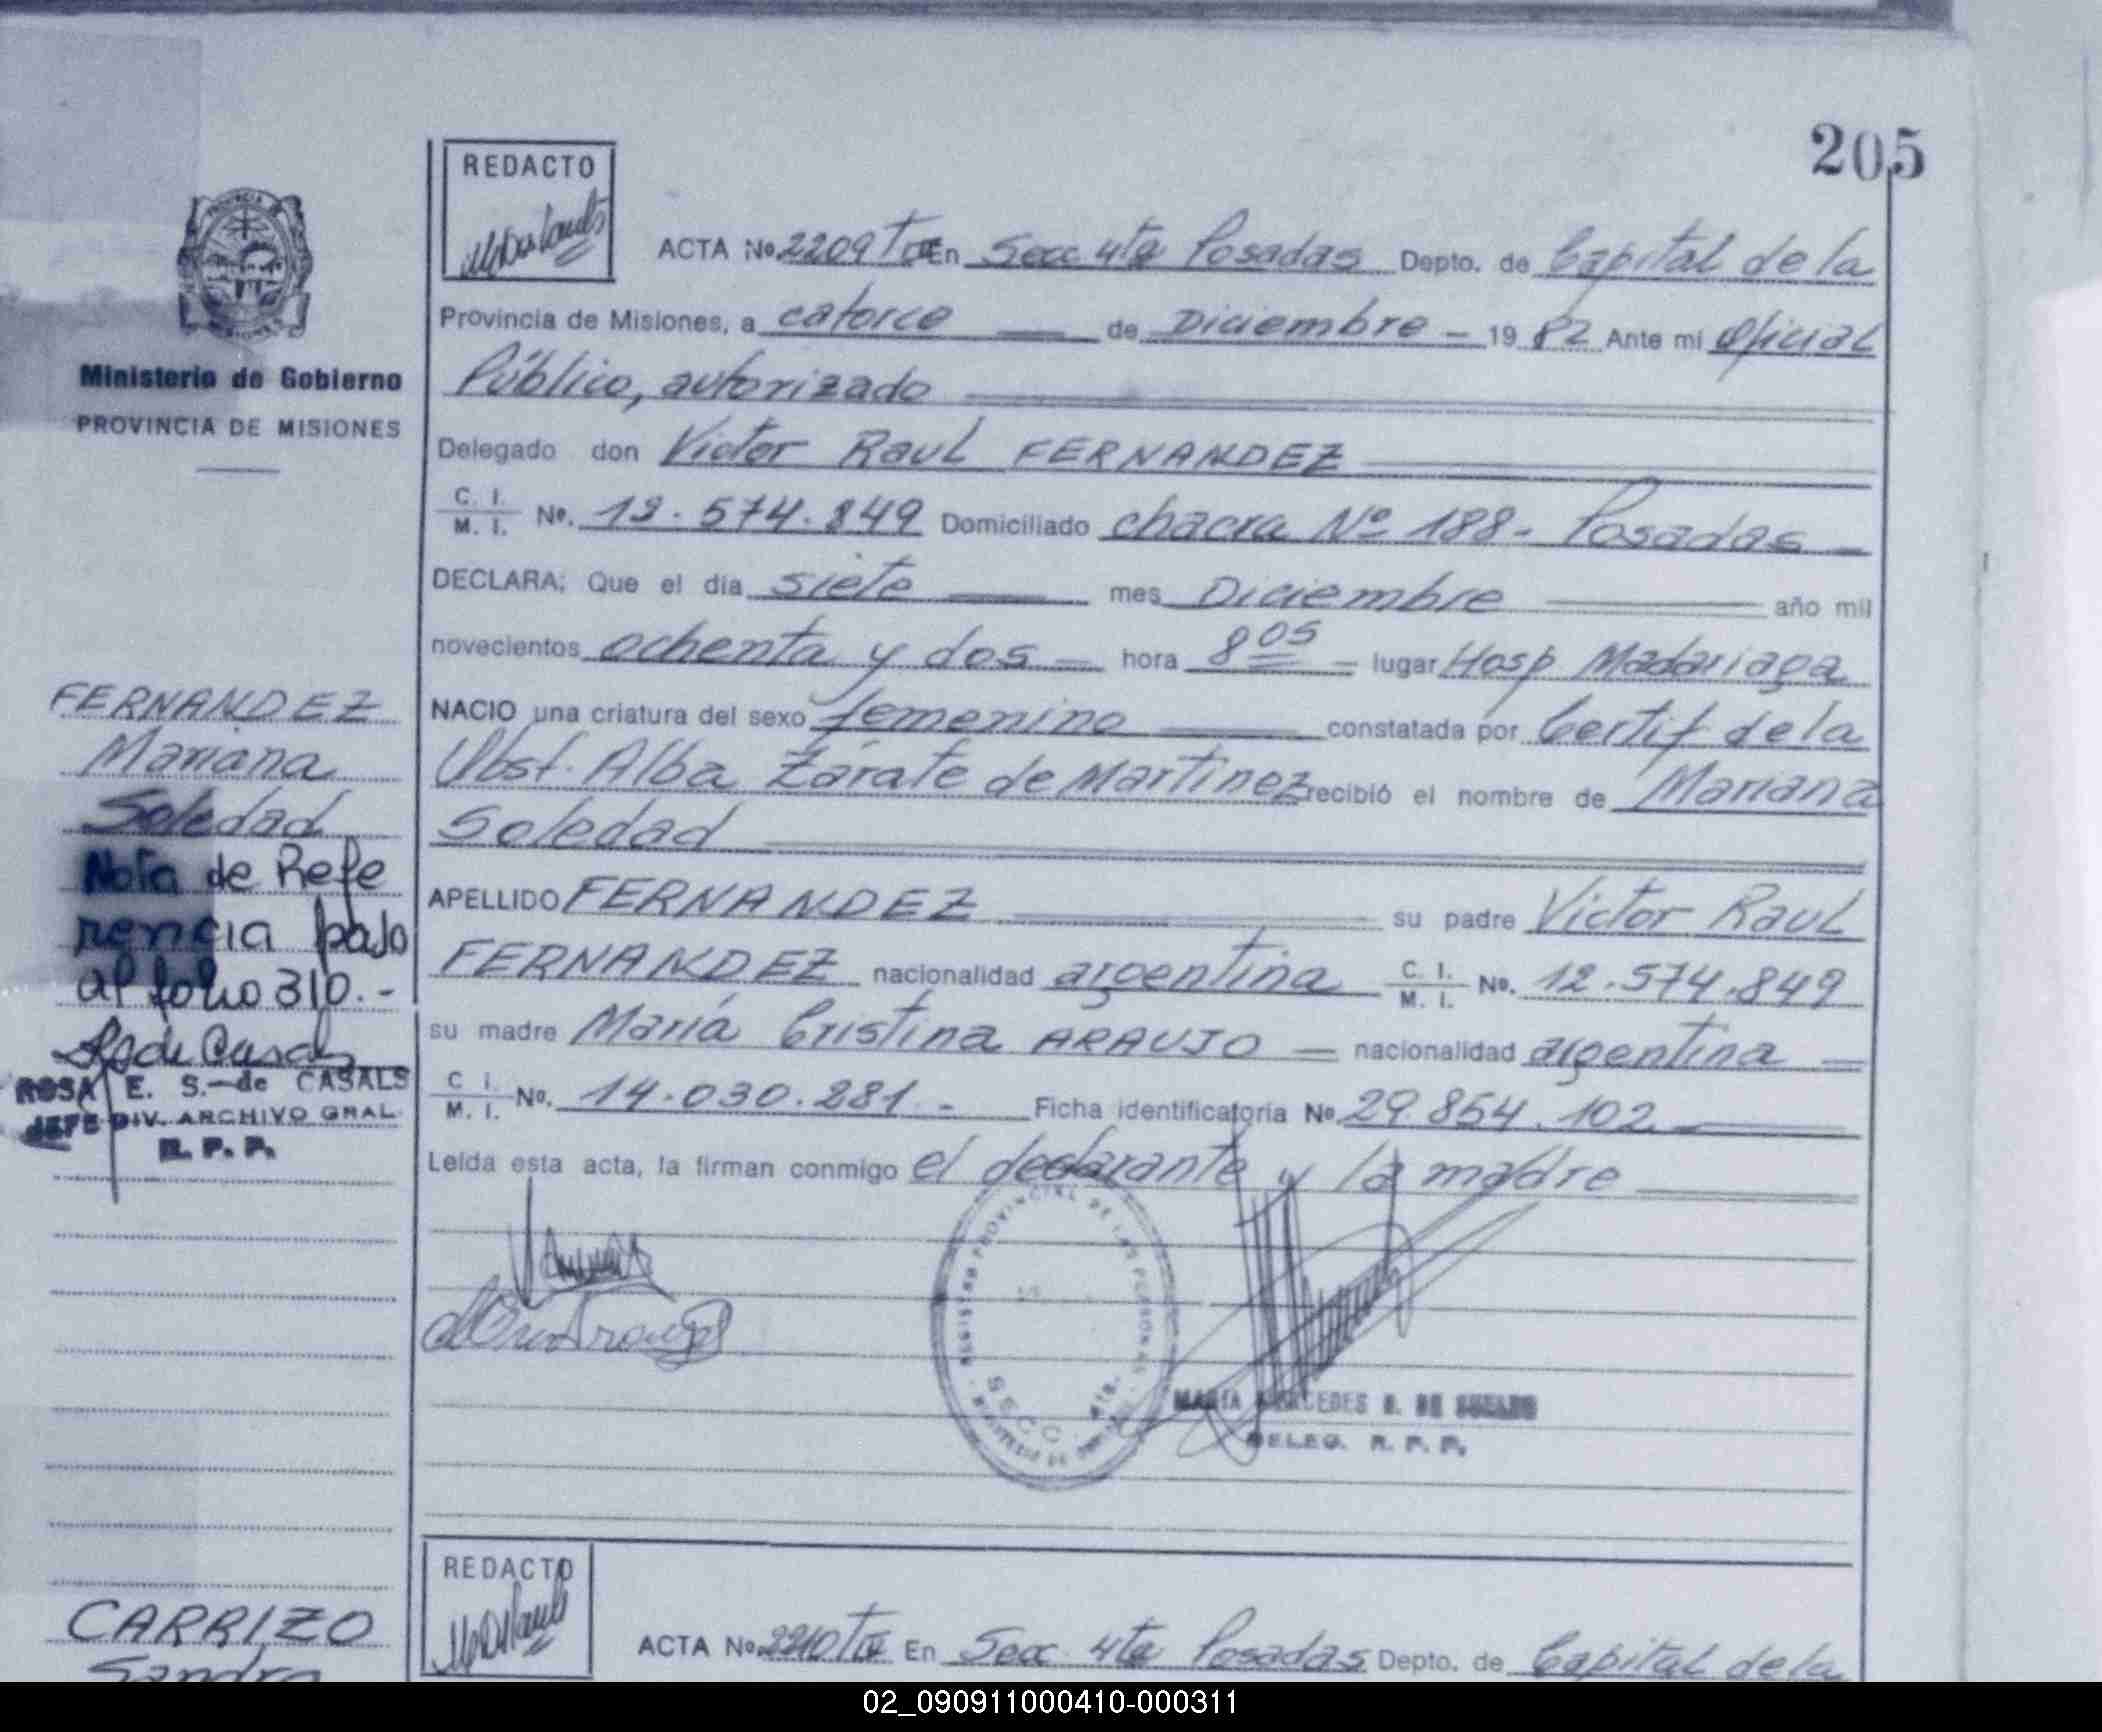 205
REDACTO
ACTA No. 2209 T En Secc 4ta Posadas Depto. de Capital de la
Provincia de Misiones, a catorce de Diciembre - 1982 Ante mi Oficial
Público, autorizado
Delegado don Victor Raul FERNANDEZ
C. I. M. I. No. 12.574.849 Domiciliado chacra Nº 188 - Posadas -
DECLARA; Que el día siete mes Diciembre año mil
novecientos ochenta y dos - hora 8 05 - lugar Hosp Madariaga
NACIO una criatura del sexo femenino constatada por Certif de la
Obst. Alba Zárate de Martínez recibió el nombre de Mariana
Soledad
APELLIDO FERNANDEZ su padre Victor Raul
FERNANDEZ nacionalidad argentina C. I. M. I. No. 12.574.849
su madre María Cristina ARAUJO - nacionalidad argentina -
C. I. M. I. No. 14.030.281 - Ficha identificatoria No. 29.854.102 -
Leída esta acta, la firman conmigo el declarante y la madre
REGISTRO PROVINCIAL DE LAS PERSONAS
SECC.
DELEG. R. P. P.
Ministerio de Gobierno
PROVINCIA DE MISIONES
FERNANDEZ
Mariana
Soledad
Nota de Refe
rencia bajo
al folio 310.-
ROSA E. S. de CASALS
JEFE DIV. ARCHIVO GRAL.
R. P. P.
REDACTO
ACTA No. 2210 T En Secc. 4ta Posadas Depto. de Capital de la
CARRIZO
Sandra
02_090911000410-000311